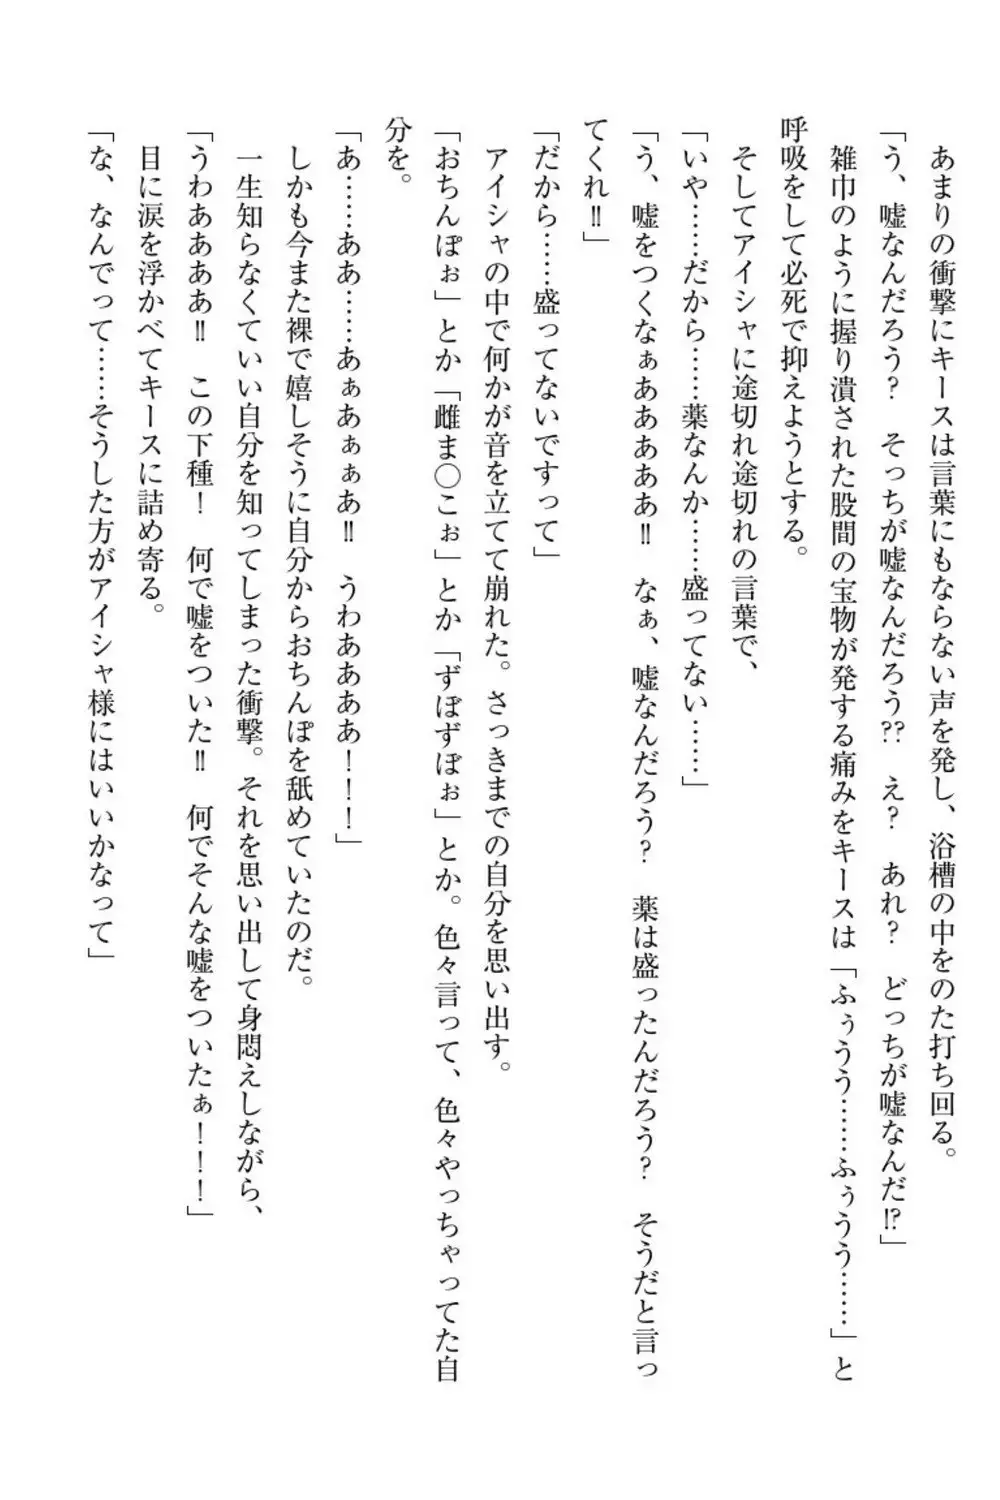 あまりの衝撃にキースは言葉にもならない声を発し、浴槽の中をのた打ち回る。
「う、嘘なんだろう?　そっちが嘘なんだろう??　え?　あれ?　どっちが嘘なんだ!?」
　雑巾のように握り潰された股間の宝物が発する痛みをキースは「ふぅうう……ふぅうう……」と
呼吸をして必死で抑えようとする。
　そしてアイシャに途切れ途切れの言葉で、
「いや……だから……薬なんか……盛ってない……」
「う、嘘をつくなぁああああ‼　なぁ、嘘なんだろう?　薬は盛ったんだろう?　そうだと言っ
てくれ‼」
「だから……盛ってないですって」
　アイシャの中で何かが音を立てて崩れた。さっきまでの自分を思い出す。
「おちんぽぉ」とか「雌ま〇こぉ」とか「ずぼずぼぉ」とか。色々言って、色々やっちゃってた自
分を。
「あ……ああ……あぁあぁぁあ‼　うわああああ!!!」
　しかも今また裸で嬉しそうに自分からおちんぽを舐めていたのだ。
　一生知らなくていい自分を知ってしまった衝撃。それを思い出して身悶えしながら、
「うわああああ‼　この下種!　何で嘘をついた‼　何でそんな嘘をついたぁ!!!」
　目に涙を浮かべてキースに詰め寄る。
「な、なんでって……そうした方がアイシャ様にはいいかなって」